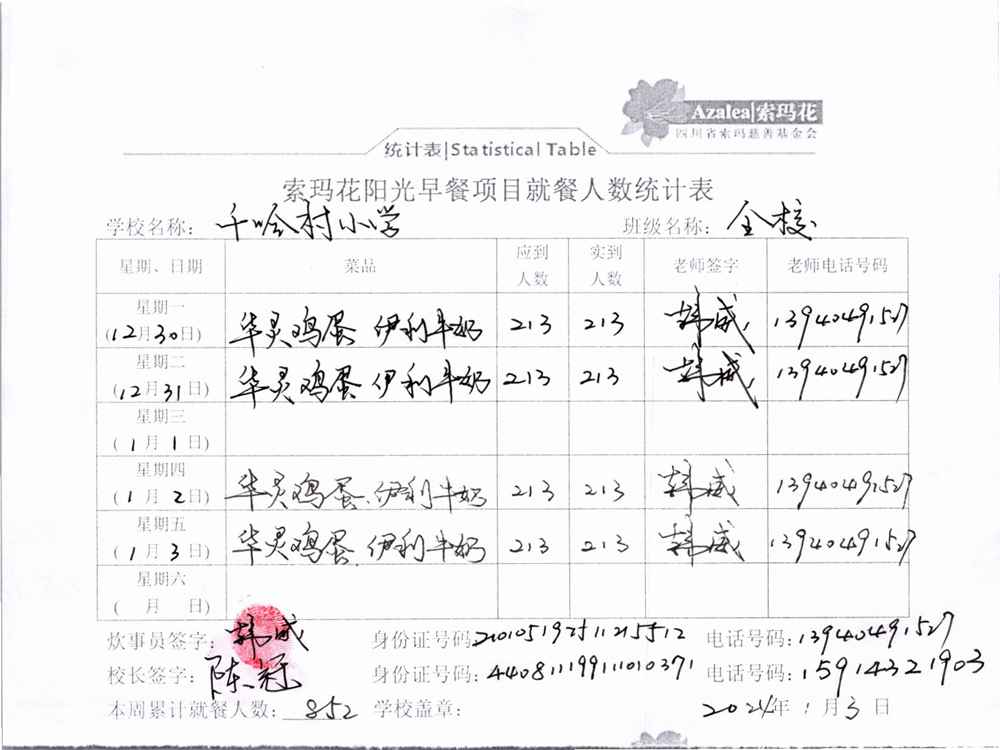 Azalea|索玛花
四川省索玛慈善基金会
统计表|Statistical Table
索玛花阳光早餐项目就餐人数统计表
学校名称: 千哈村小学 班级名称: 全校
星期、日期 菜品 应到人数 实到人数 老师签字 老师电话号码
星期一 (12月30日) 华灵鸡蛋 伊利牛奶 213 213 韩威 13940491527
星期二 (12月31日) 华灵鸡蛋 伊利牛奶 213 213 韩威 13940491527
星期三 (1月1日)
星期四 (1月2日) 华灵鸡蛋 伊利牛奶 213 213 韩威 13940491527
星期五 (1月3日) 华灵鸡蛋 伊利牛奶 213 213 韩威 13940491527
星期六 ( 月 日)
炊事员签字: 韩威 身份证号码: 电话号码: 13940491527
校长签字: 陈冠 身份证号码: 440811199111010371 电话号码: 15914321903
本周累计就餐人数: 852 学校盖章: 2024年1月3日